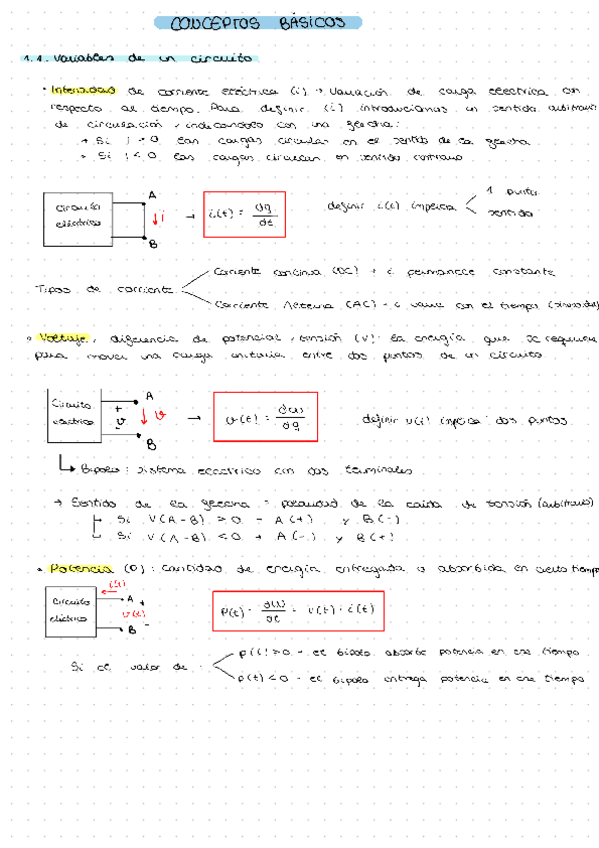 CONCEPTOS BÁSICOS
1.1. Variables de un circuito
• Intensidad de corriente eléctrica (i) → Variación de carga eléctrica con
respecto al tiempo. Para definir (i) introducimos un sentido arbitrario
de circulación, indicándolo con una flecha:
→ Si i > 0 las cargas circulan en el sentido de la flecha
→ Si i < 0 las cargas circulan en sentido contrario
circuito eléctrico A B i → i(t) = dq/dt definir i(t) implica 1 punto sentido
Tipos de corriente
Corriente continua (DC) → i permanece constante
Corriente Alterna (AC) - i varía con el tiempo (sinusoidal)
• Voltaje, diferencia de potencial, tensión (v): la energía que se requiere
para mover una carga unitaria entre dos puntos de un circuito
Circuito eléctrico + v - A B v → v(t) = dw/dq definir v(t) implica dos puntos
Bipolo: sistema eléctrico con dos terminales
→ Sentido de la flecha = polaridad de la caída de tensión (arbitrario)
Si V(A-B) > 0 → A(+) y B(-)
Si V(A-B) < 0 → A(-) y B(+)
• Potencia (p): cantidad de energía entregada o absorbida en cierto tiempo
Circuito eléctrico i(t) A + v(t) - B P(t) = dw/dt = v(t) · i(t)
Si el valor de:
p(t) > 0 - el bipolo absorbe potencia en ese tiempo
p(t) < 0 - el bipolo entrega potencia en ese tiempo